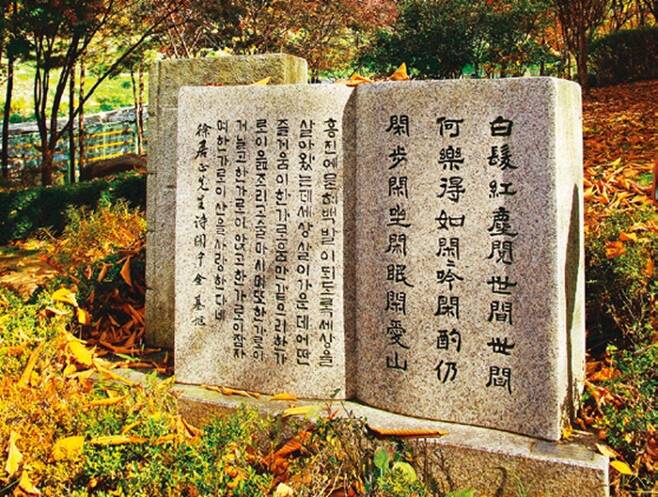 白髮紅塵閱世間世間
何樂得如閑〻吟閑酌仍
閑步閑坐閑眠閑愛山
홍진에묻혀백발이되도록세상을
살아왔는데세상살이가운데어떤
즐거움이한가로움만같으리한가
로이읊조리고술마시며또한가로이
거닐고한가로이앉고한가로이잠자
며한가로이산을사랑한다네
徐居正先生詩閑中